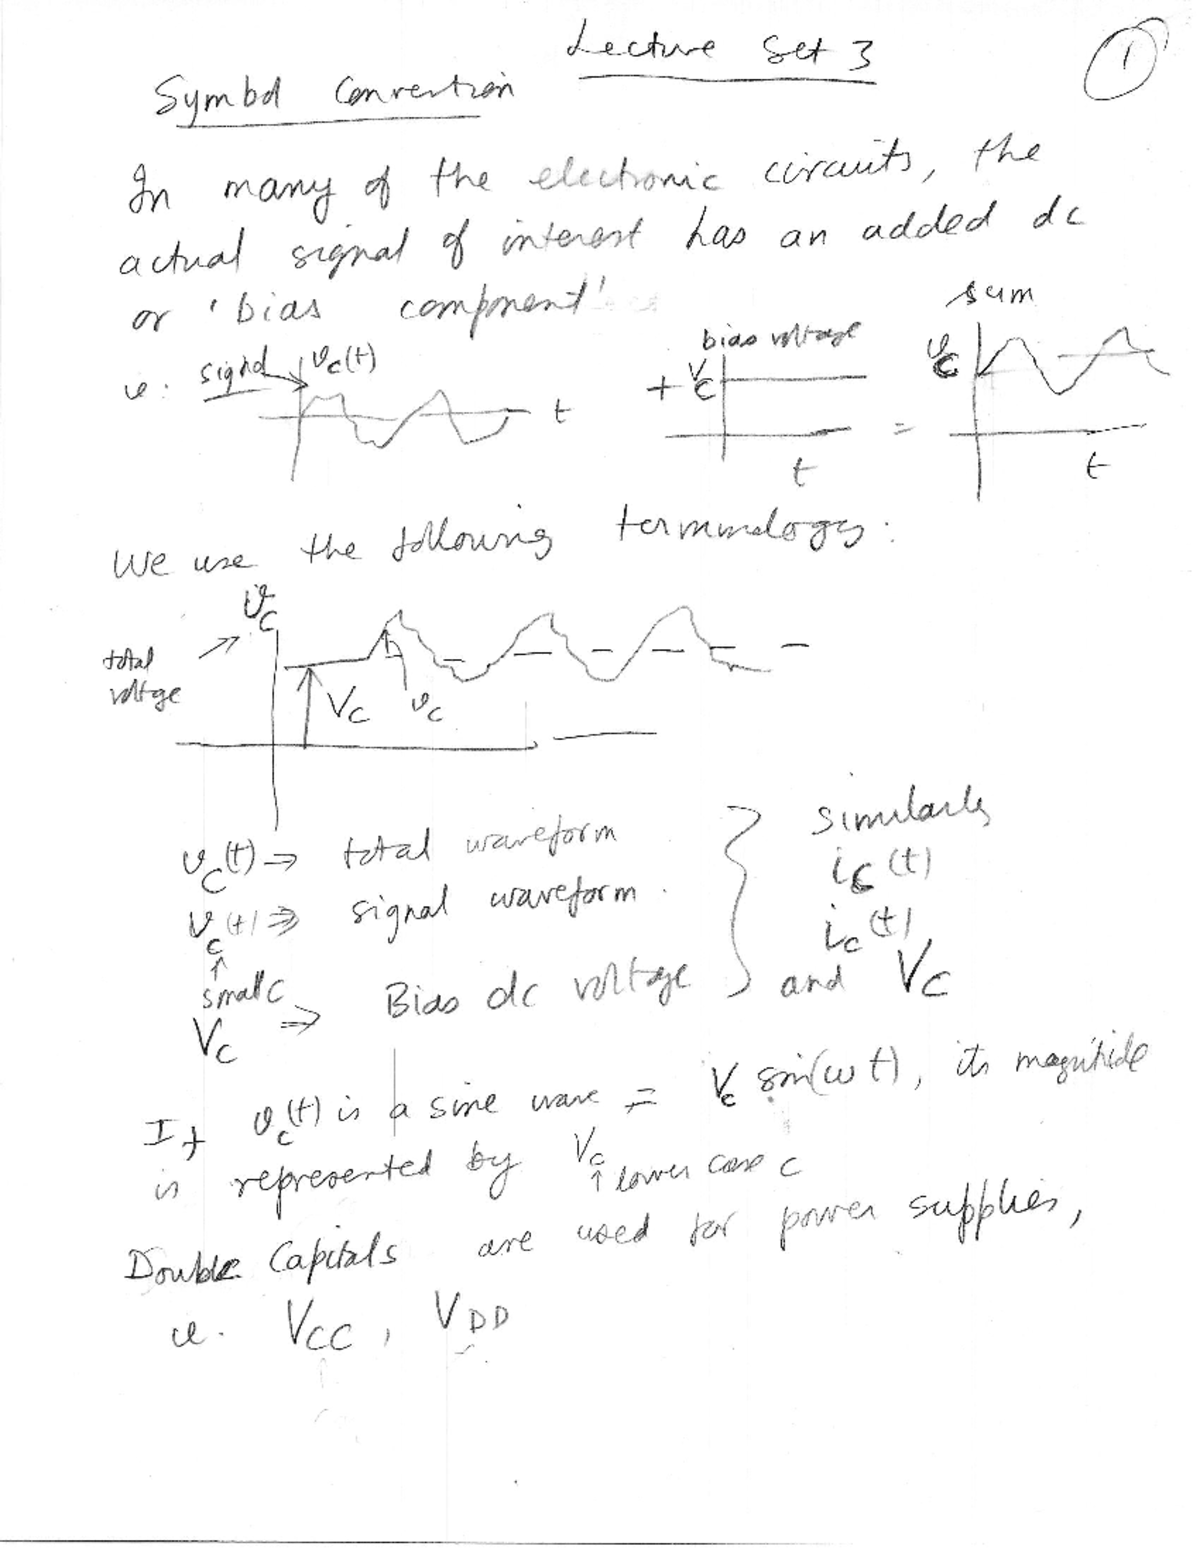 Lecture Set 3
1
Symbol Convention
In many of the electronic circuits, the
actual signal of interest has an added dc
or 'bias component'
ie: signal v_c(t) t
+ bias voltage V_C t
= sum v_C t
We use the following terminology:
v_C
total voltage
V_C v_c
v_C(t) ⇒ total waveform
v_c(t) ⇒ signal waveform.
↑
small c
V_C ⇒ Bias dc voltage
similarly
i_C(t)
i_c(t)
and V_C
If v_c(t) is a sine wave = V_c sin(ωt), its magnitude
is represented by V_c
↑ lower case c
Double Capitals are used for power supplies,
ie. V_CC, V_DD